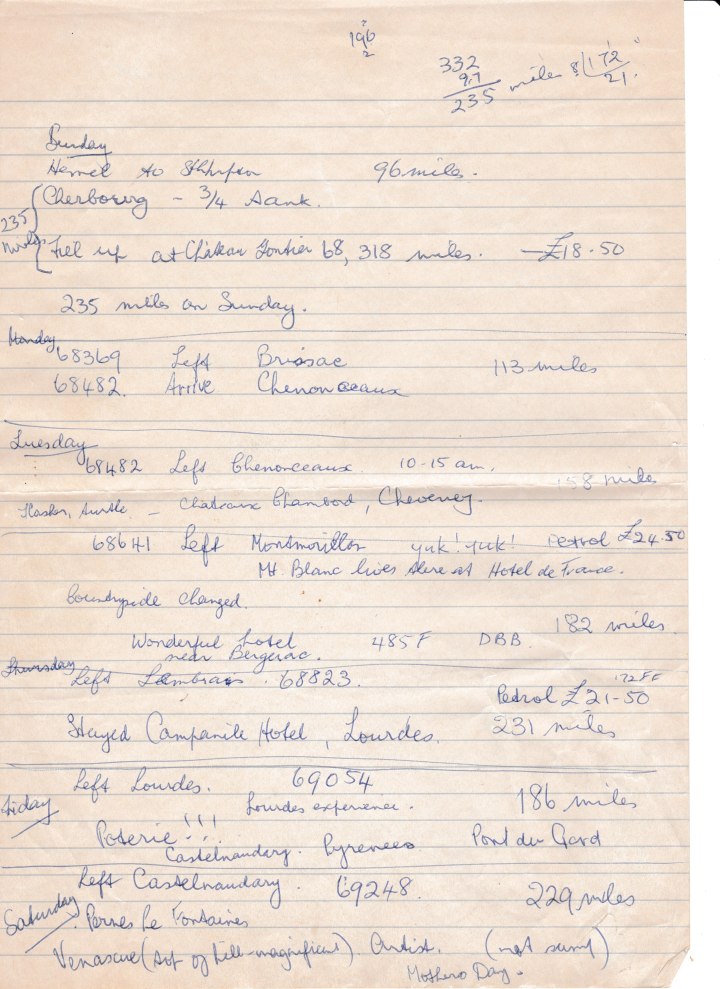 196
2
332
97
235 miles 8 172
21.
Sunday
Hemel to 96 miles.
Cherbourg - 3/4 Aank.
235
miles
Fill up at Château Gontier 68,318 miles. - £18.50
235 miles on Sunday.
Monday
68369 Left Brissac 113 miles
68482. Arrive Chenonceaux
Tuesday
68482 Left Chenonceaux 10-15 am.
158 miles
- Chateaux Chambord, Cheverney.
68641 Left Montmorillon yuk! yuk! Petrol £24.50
Mt. Blanc lives there at Hotel de France.
Countryside changed.
Wonderful hotel 485F DBB 182 miles
near Bergerac.
Thursday
Left 68823. 172FF
Petrol £21-50
Stayed Campanile Hotel, Lourdes. 231 miles
Left Lourdes. 69054
Friday Lourdes experience. 186 miles
Poterie!!!
Castelnaudary. Pyrenees Pont du Gard
Left Castelnaudary. 69248. 229 miles
Saturday
Pernes le Fontaines
Venasque (top of hill-magnificent). Artist. (not sunny)
Mothers Day.